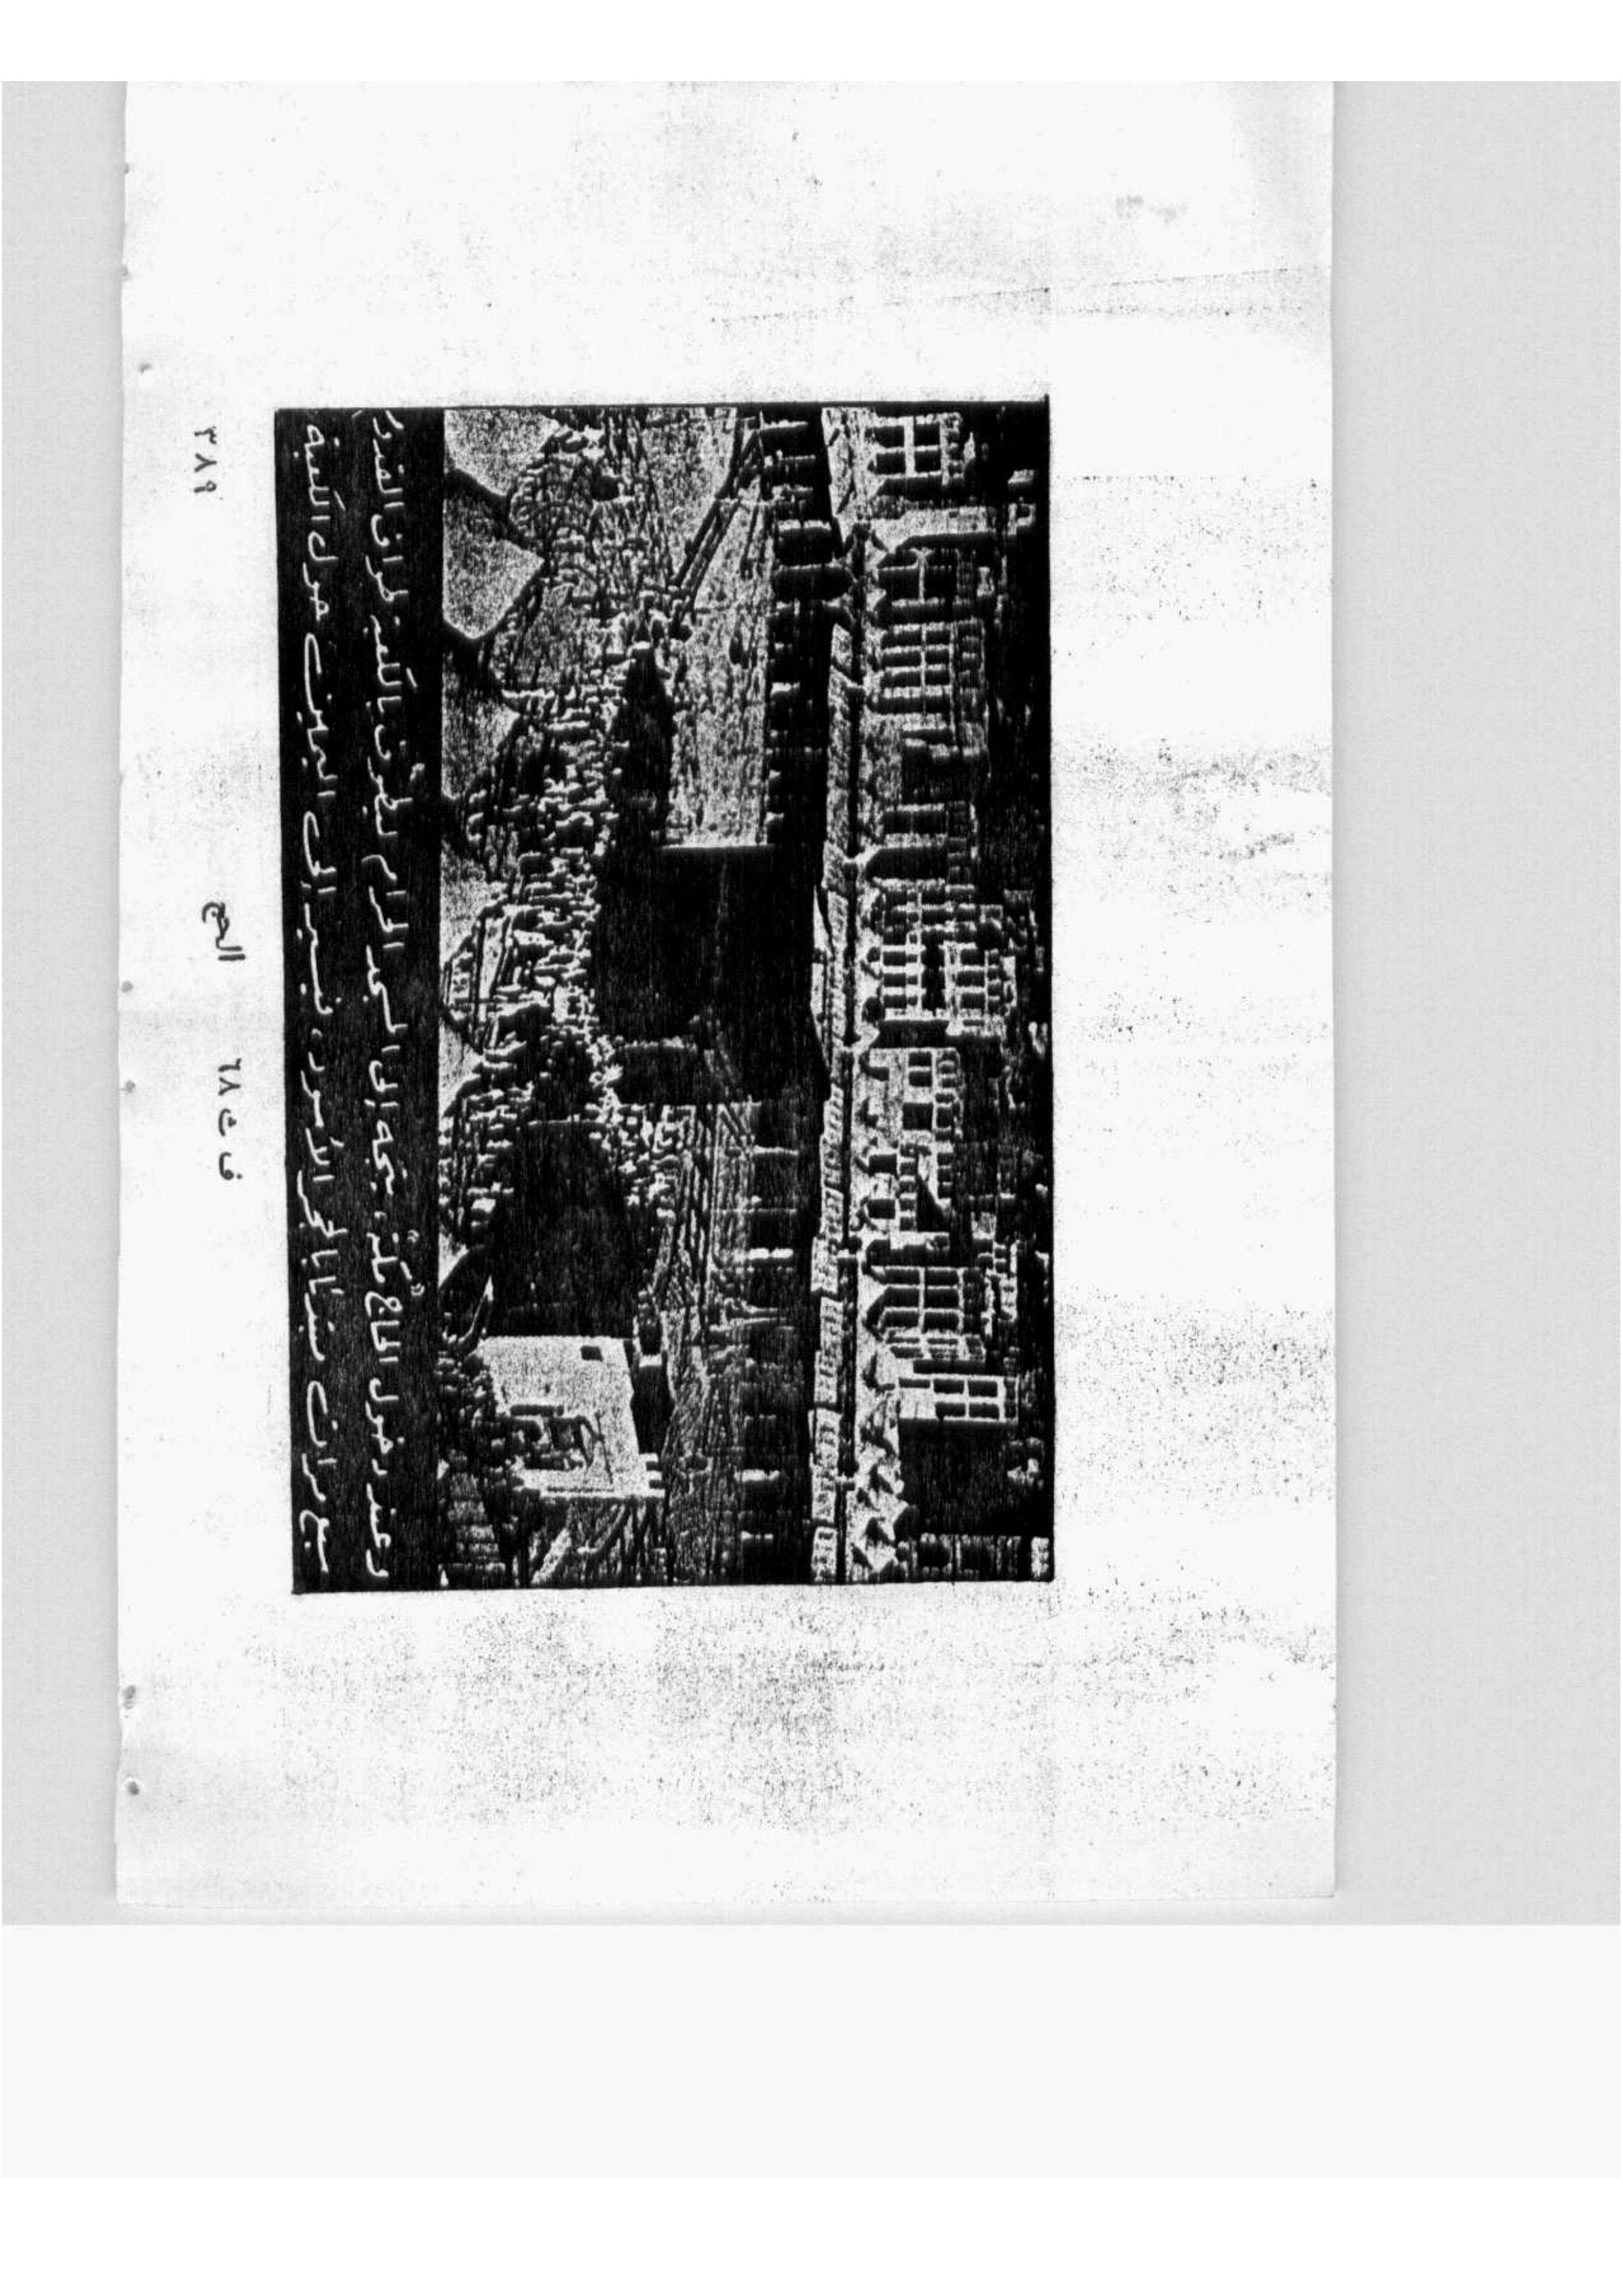 وعند دخول الحاج مكة، يتوجه إلى المسجد الحرام ليطوف بالكعبة طواف القدوم
سبع مرات مبتدئا بالحجر الأسود، ثم يسير إلى اليمين حول الكعبة.
ف ت ٢٨
الحج
٣٨٩